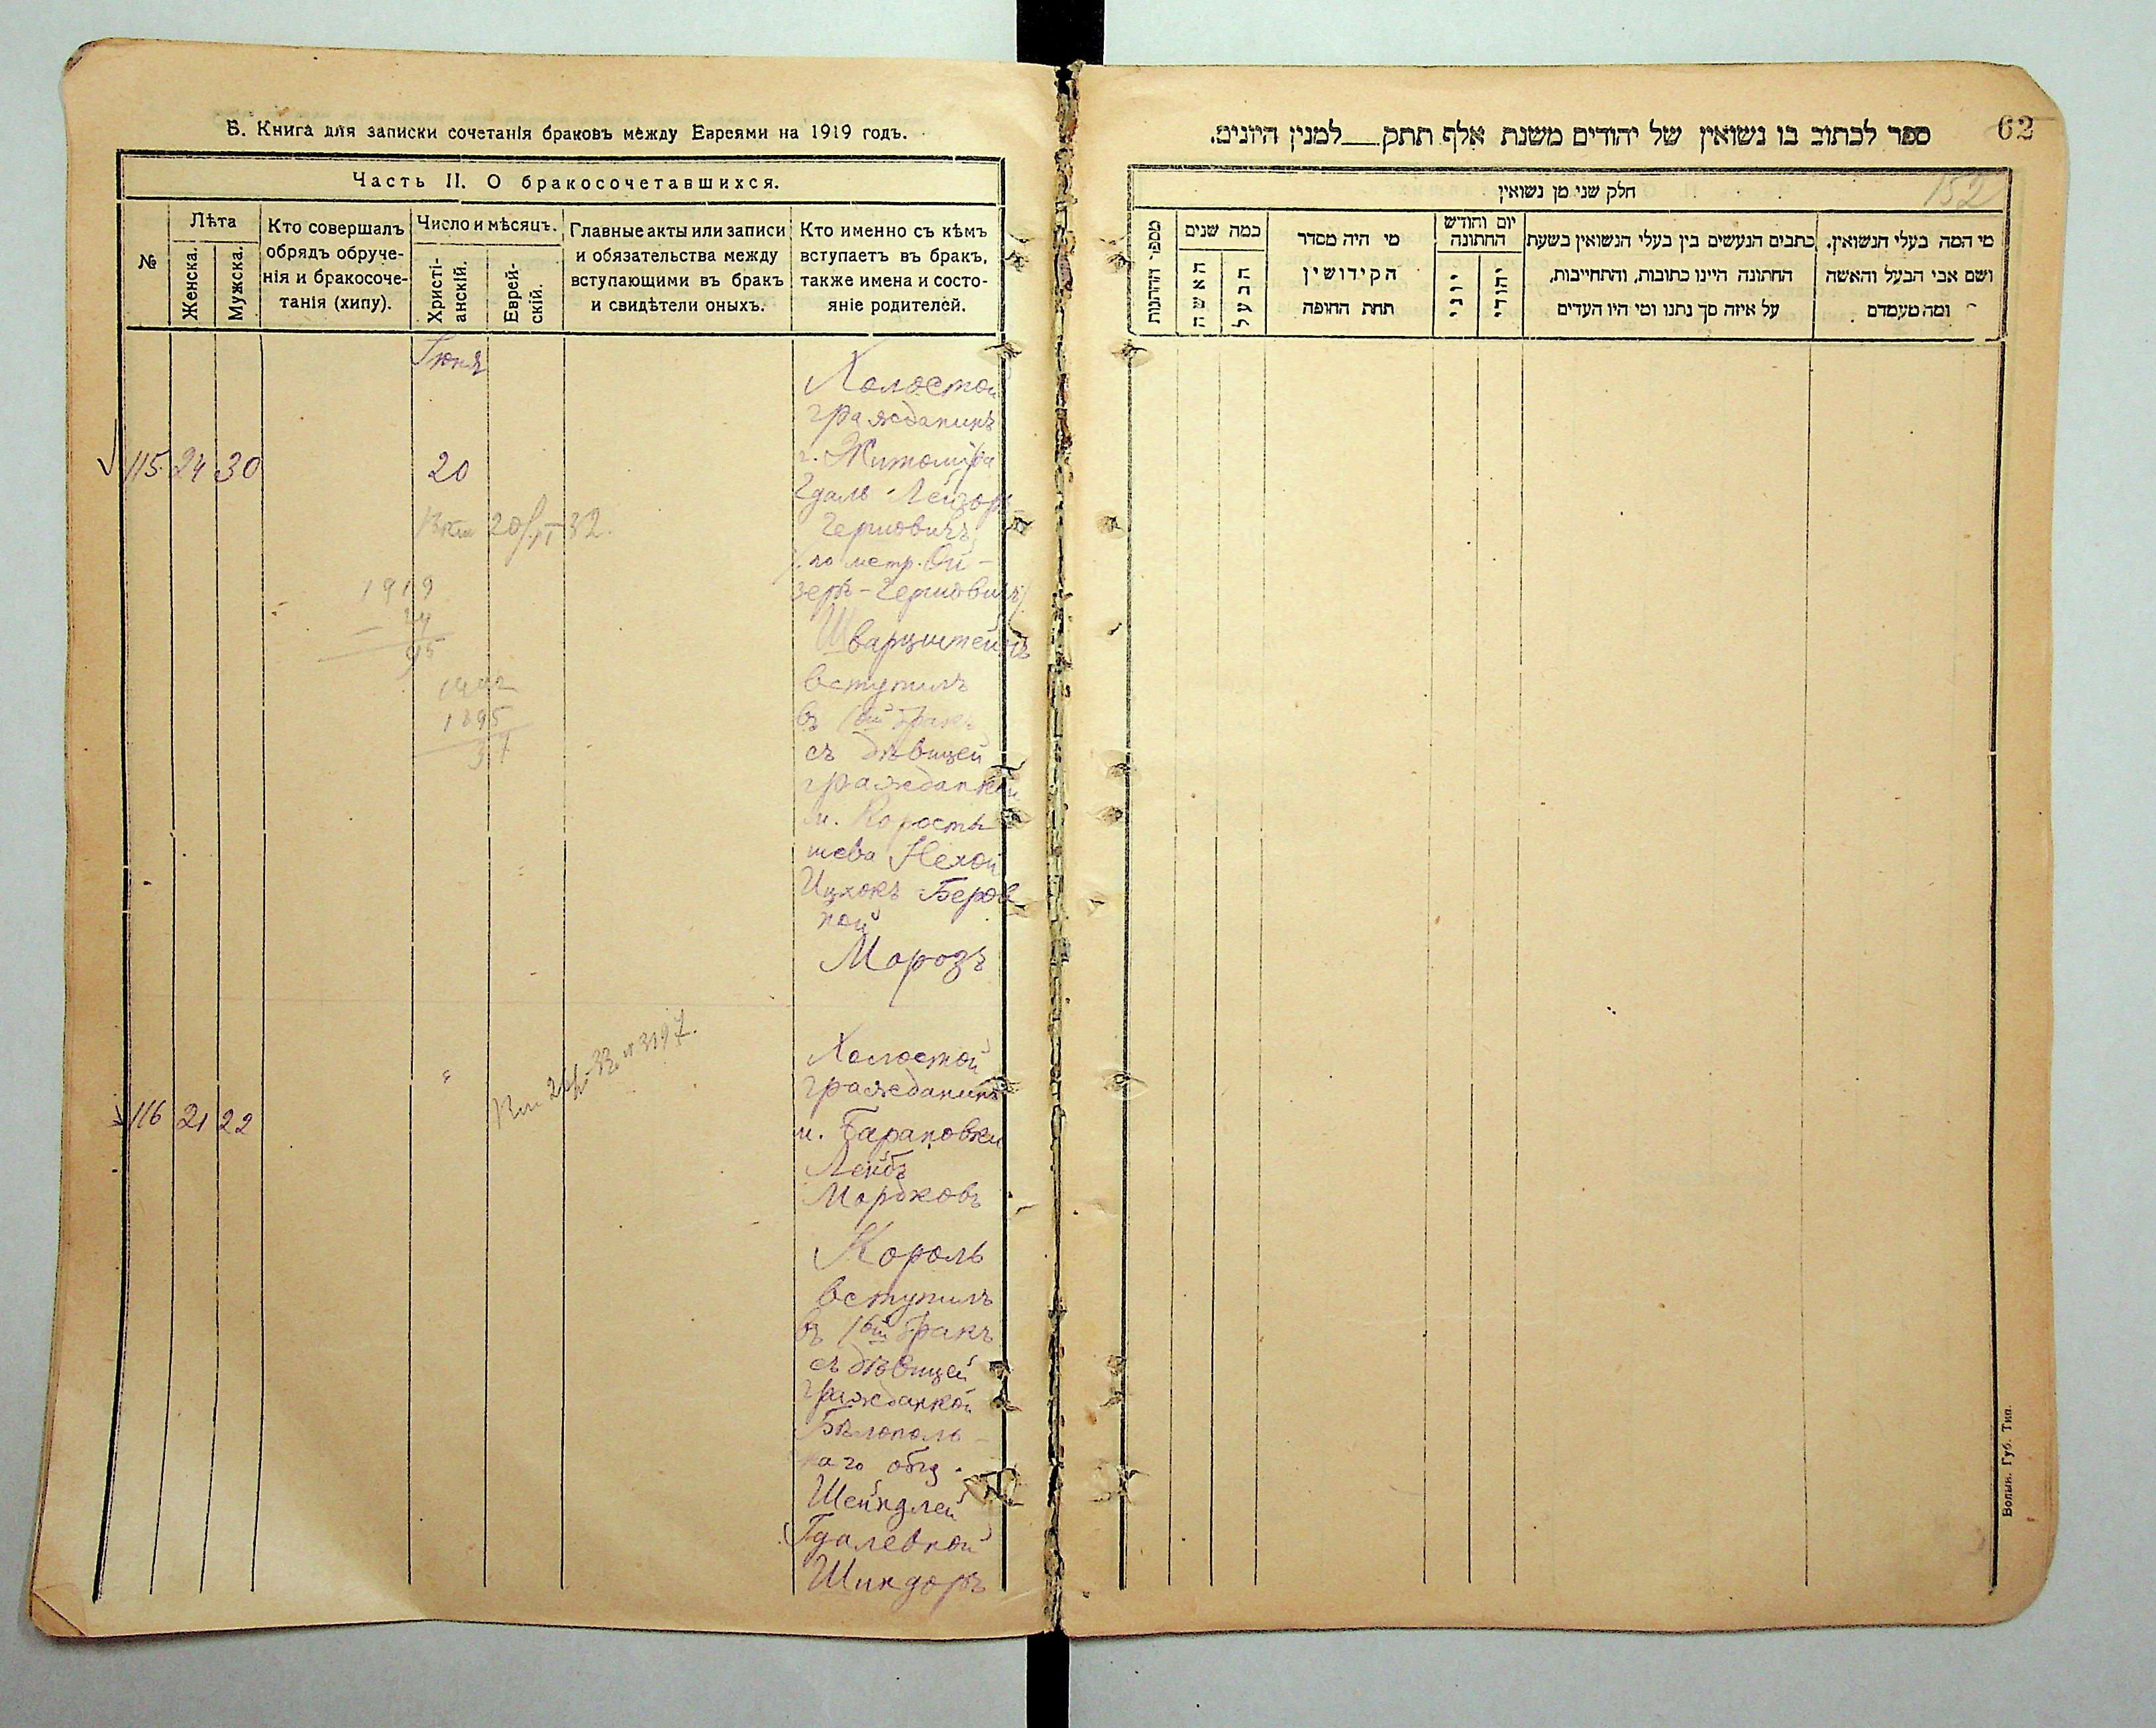 Б. Книга для записки сочетанія браковъ между Евреями на 1919 годъ.
Часть II. О бракосочетавшихся.
№
Лѣта
Женска.
Мужска.
Кто совершалъ
обрядъ обруче-
нія и бракосоче-
танія (хипу).
Число и мѣсяцъ.
Христі-
анскій.
Еврей-
скій.
Главные акты или записи
и обязательства между
вступающими въ бракъ
и свидѣтели оныхъ.
Кто именно съ кѣмъ
вступаетъ въ бракъ,
также имена и состо-
яніе родителей.
Іюня
115 24 30
20
Холостой
гражданинъ
г. Житоміра
Гдаль Лейзор
Гершовичъ
по метр. Ой-
зеръ-Гершовичъ
Шварцштейнъ
вступилъ
въ 1ый бракъ
съ дѣвицей
гражданкой
м. Корости
шева Нехой
Ицхокъ Беров
ной
Морозъ
1919
24
95
1895
37
116 21 22
"
Холостой
гражданинъ
м. Барановки
Лейбъ
Мордковъ
Король
вступилъ
въ 1ый бракъ
съ дѣвицей
гражданкой
Бѣлополь-
каго общ.
Шейндлей
Гдалевной
Шиндоръ
62
152
ספר לכתוב בו נשואין של יהודים משנת אלף תתק___למנין היונים.
חלק שני מן נשואין
מספר החתונות
כמה שנים
האשה
הבעל
מי היה מסדר
הקידושין
תחת החופה
יום וחודש
החתונה
יוני
יהודי
כתבים הנעשים בין בעלי הנשואין בשעת
החתונה היינו כתובות, והתחייבות,
על איזה סך נתנו ומי היו העדים
מי המה בעלי הנשואין.
ושם אבי הבעל והאשה
ומה מעמדם
Волын. Губ. Тип.